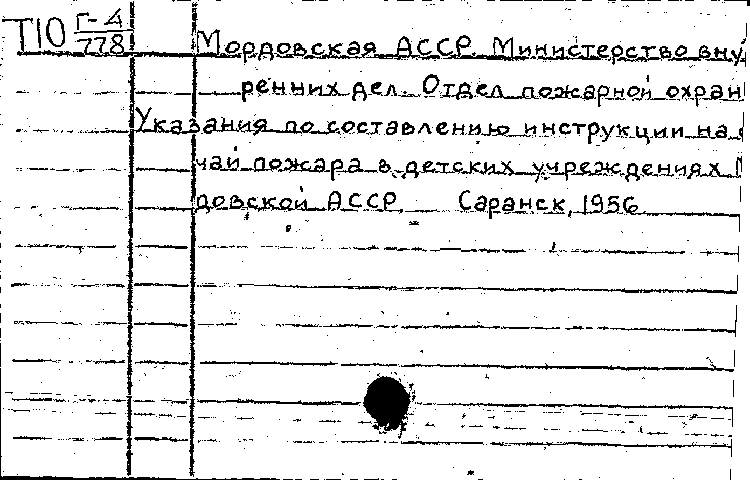 Т10 Г-4/778
Мордовская АССР. Министерство вну
ренних дел. Отдел пожарной охран
Указания по составлению инструкции на с
чай пожара в детских учреждениях М
довской АССР. Саранск, 1956